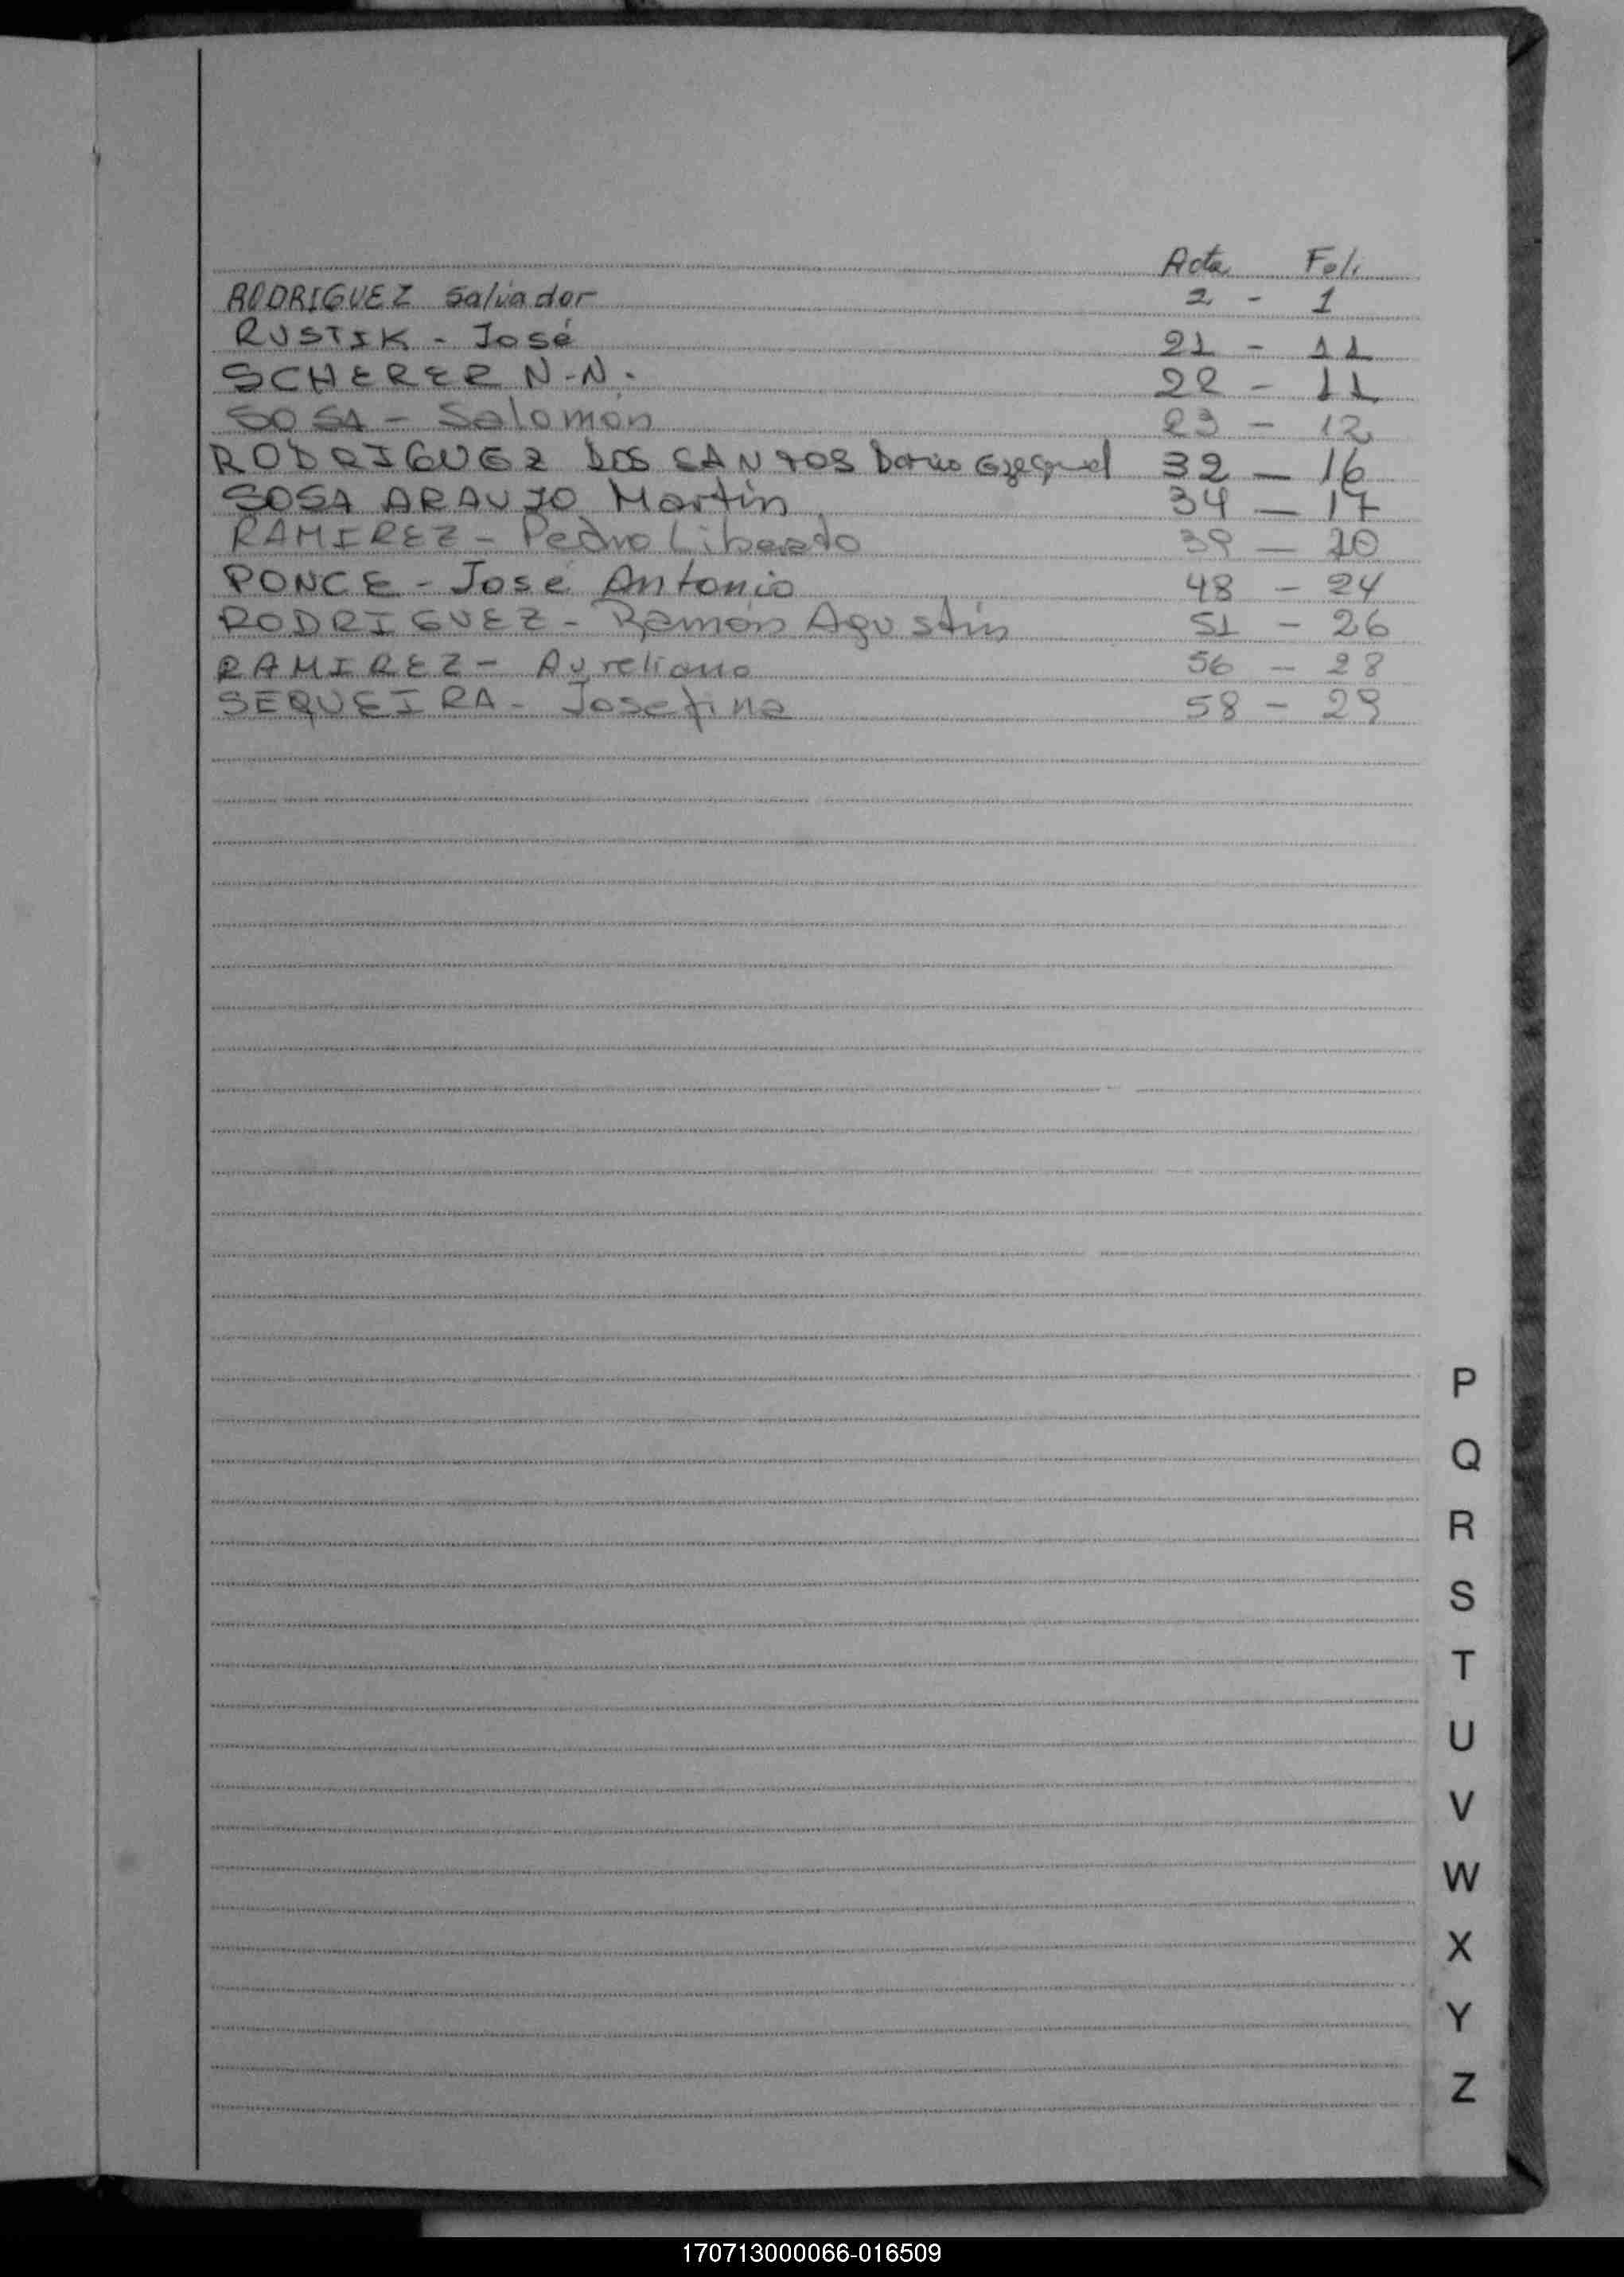 Acta Foli
RODRIGUEZ Salvador 2 - 1
RUSTIK - José 21 - 11
SCHERER N-N. 22 - 11
SOSA - Salomón 23 - 12
RODRIGUEZ DOS SANTOS Dario Ezequiel 32 - 16
SOSA ARAUJO Martín 34 - 17
RAMIREZ - Pedro Liberato 39 - 20
PONCE - José Antonio 48 - 24
RODRIGUEZ - Ramón Agustín 51 - 26
RAMIREZ - Aureliano 56 - 28
SEQUEIRA - Josefina 58 - 29
P
Q
R
S
T
U
V
W
X
Y
Z
170713000066-016509